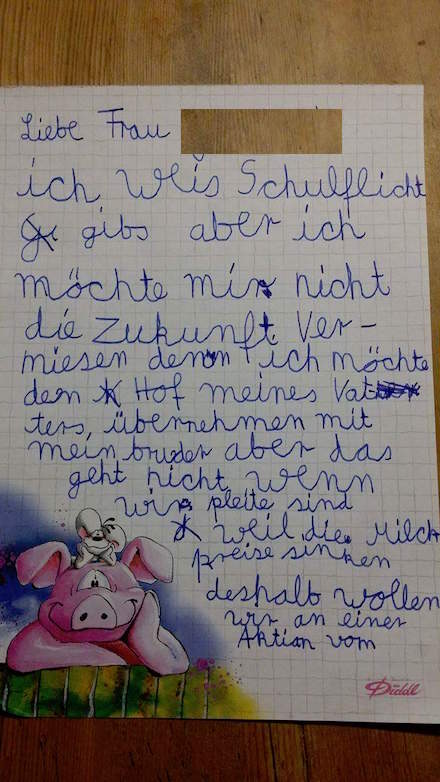 Liebe Frau
ich weis Schulflicht
gibs aber ich
möchte mir nicht
die Zukunft ver-
miesen denn ich möchte
den Hof meines Vat
ters, übernehmen mit
mein bruder aber das
geht nicht wenn
wir pleite sind
weil die Milch
preise sinken
deshalb wollen
wir an einer
Aktion vom
Diddl